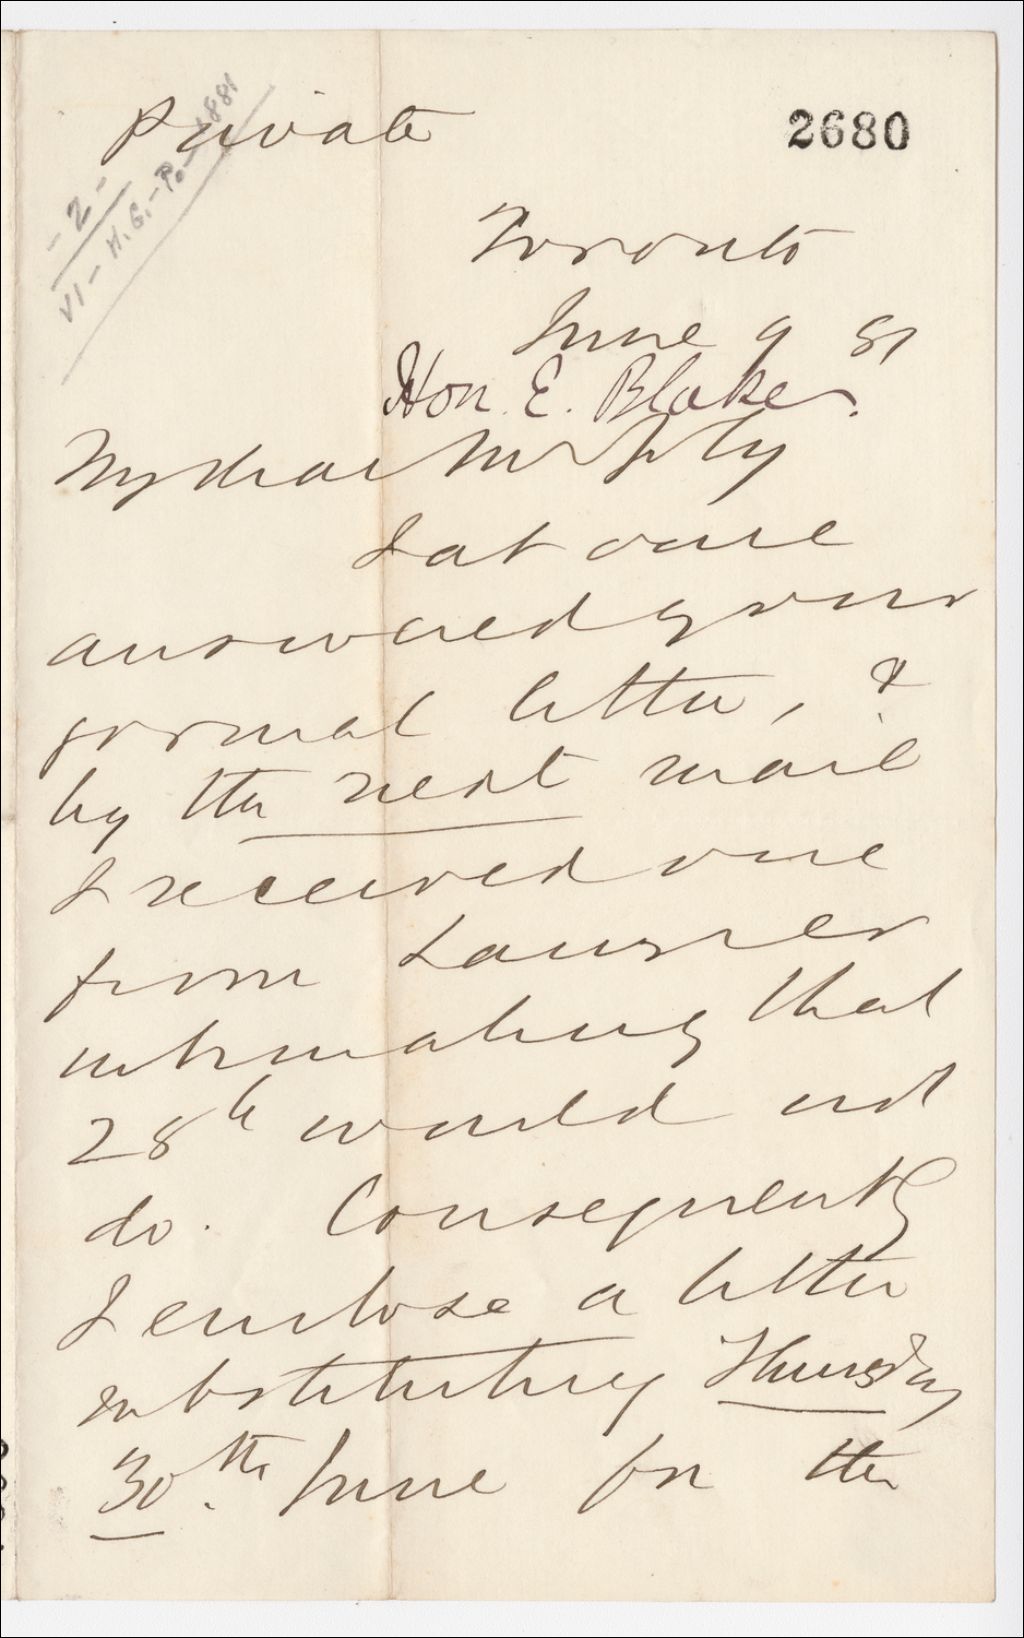 Private
2680
- 2 -
VI - H.G. - Po - 1881
Toronto
June 9 81
Hon. E. Blake.
My dear
I at once
answered your
formal letter, &
by the next mail
I received one
from Laurier
intimating that
28th would not
do. Consequently
I enclose a letter
substituting Thursday
30th. June for the